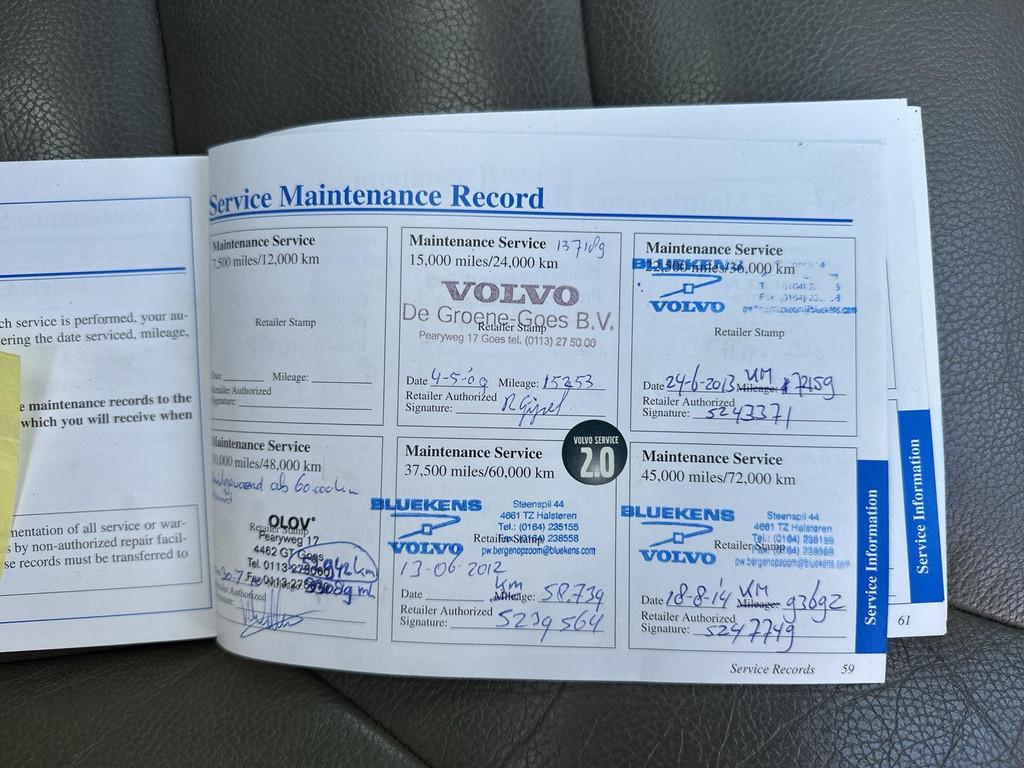 ch service is performed, your au-
ering the date serviced, mileage,
e maintenance records to the
which you will receive when
mentation of all service or war-
s by non-authorized repair facil-
se records must be transferred to
Service Maintenance Record
Maintenance Service
7,500 miles/12,000 km
Retailer Stamp
Date Mileage:
Retailer Authorized
Signature:
Maintenance Service 137189
15,000 miles/24,000 km
VOLVO
De Groene-Goes B.V.
Retailer Stamp
Pearyweg 17 Goes tel. (0113) 27 50 00
Date 4-5-'09 Mileage: 15253
Retailer Authorized
Signature:
Maintenance Service
22,500 miles/36,000 km
BLUEKENS
VOLVO
Retailer Stamp
Date 24-6-2013 KM Mileage: 72159
Retailer Authorized
Signature: 5243371
Maintenance Service
30,000 miles/48,000 km
ab 60.000 km
OLOV
Retailer Stamp
Pearyweg 17
4462 GT Goes
Tel. 0113-
Fax 0113-
Signature:
Maintenance Service
37,500 miles/60,000 km
VOLVO SERVICE
2.0
BLUEKENS
VOLVO
Steenspil 44
4661 TZ Halsteren
Tel.: (0164) 235155
Fax: (0164) 238558
Retailer Stamp
pw.bergenopzoom@bluekens.com
13-06-2012
Date km Mileage: 58.739
Retailer Authorized
Signature: 5239564
Maintenance Service
45,000 miles/72,000 km
BLUEKENS
VOLVO
Steenspil 44
4661 TZ Halsteren
Retailer Stamp
pw.bergenopzoom@bluekens.com
Date 18-8-'14 KM Mileage: 93692
Retailer Authorized
Signature: 5247749
Service Records 59
Service Information
Service Information
61